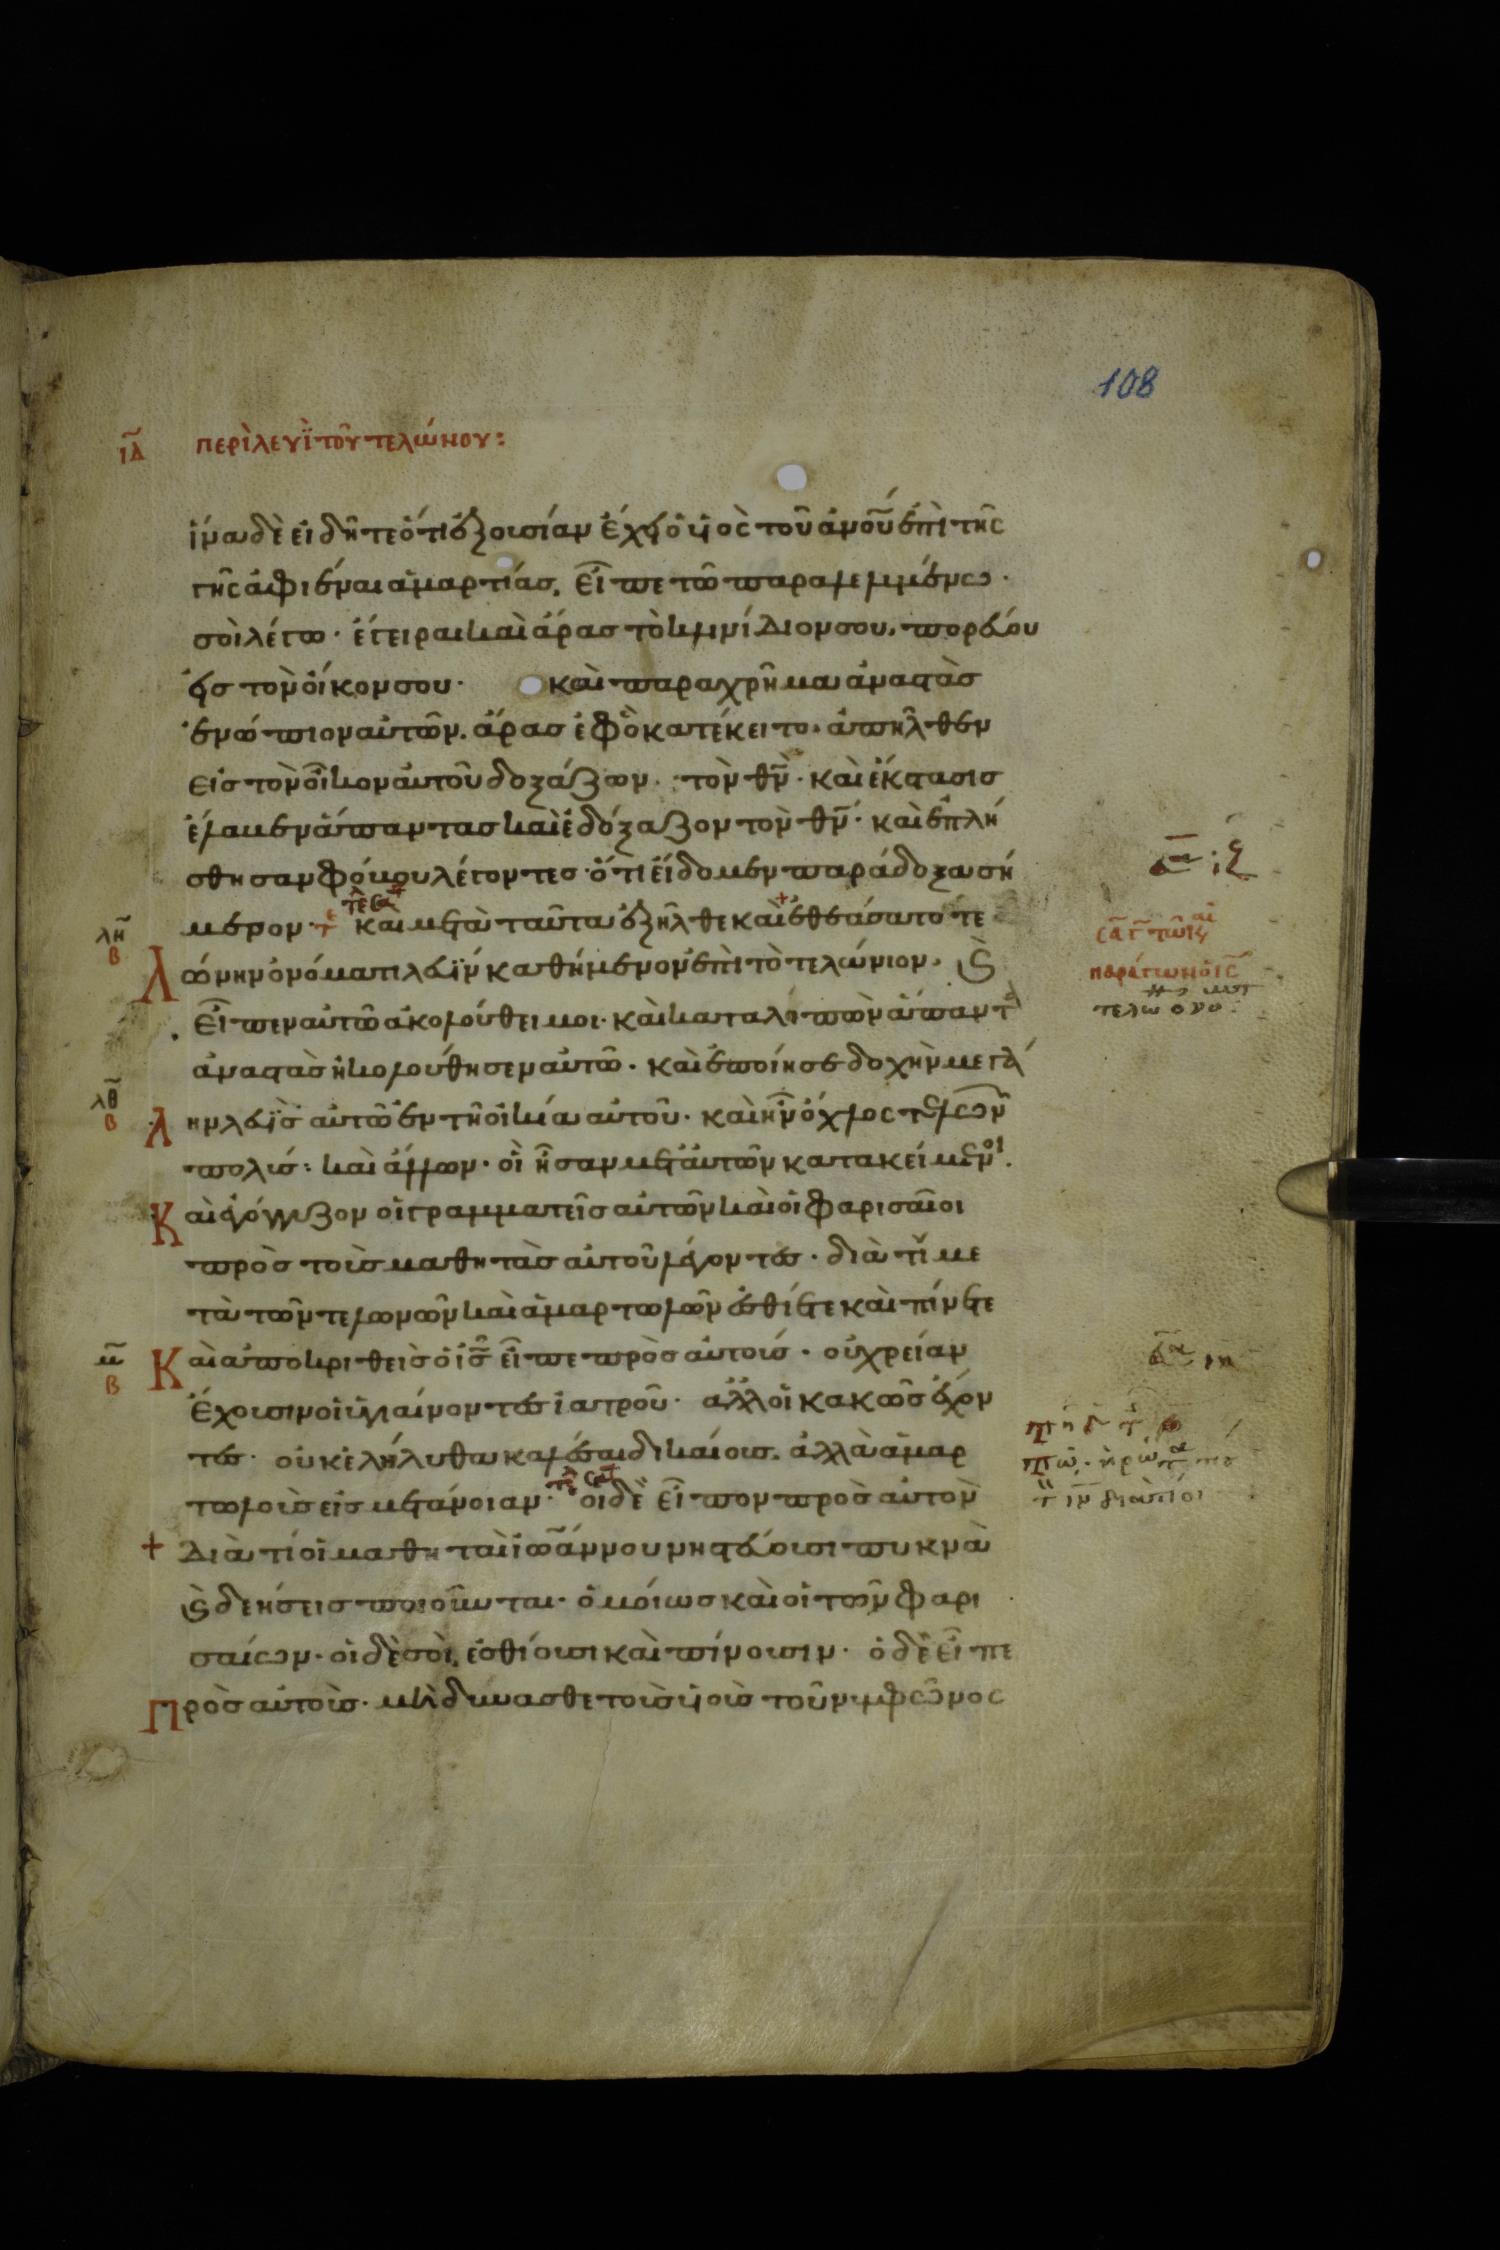 108
ιδ περὶ λευῒ τοῦ τελώνου:
ἵνα δὲ εἰδῆτε ὅτι ἐξουσίαν ἔχει ὁ υἱὸς τοῦ ἀνου ἐπὶ τῆς
γῆς ἀφιέναι ἁμαρτίας. εἶπε τῶ παραλελυμένω·
σοὶ λέγω· ἔγειραι καὶ ἄρας τὸ κλινίδιόν σου, πορεύου
εἰς τὸν οἶκόν σου· καὶ παραχρῆμα ἀναστὰς
ἐνώπιον αὐτῶν. ἄρας ἐφ ὃ κατέκειτο. ἀπῆλθεν
εἰς τὸν οἶκον αὐτοῦ δοξάζων τὸν θν· καὶ ἔκστασις
ἔλαβεν ἅπαντας καὶ ἐδόξαζον τὸν θν· καὶ ἐπλή
σθησαν φόβου λέγοντες· ὅτι εἴδομεν παράδοξα σή
μερον· καὶ μετὰ ταῦτα ἐξῆλθε καὶ ἐθεάσατο τε
λη
β
λώνην ὀνόματι λευῒν καθήμενον ἐπὶ τὸ τελώνιον. ϗ
εἶπεν αὐτῶ ἀκολούθει μοι· καὶ καταλιπὼν ἅπαντα
ἀναστὰς ἠκολούθησεν αὐτῶ· καὶ ἐποίησε δοχὴν μεγά
λθ
β
λην λευῒς αὐτῶ ἐν τῆ οἰκία αὐτοῦ· καὶ ἦν ὄχλος τελωνῶν
πολύς: καὶ ἄλλων· οἳ ἦσαν μετ αὐτῶν κατακείμενοι.
Καὶ ἐγόγγυζον οἱ γραμματεῖς αὐτῶν καὶ οἱ φαρισαῖοι
πρὸς τοὺς μαθητὰς αὐτοῦ λέγοντες· διὰ τί με
τὰ τῶν τελωνῶν καὶ ἁμαρτωλῶν ἐσθίετε καὶ πίνετε
μ
β
Καὶ ἀποκριθεὶς ὁ ις εἶπε πρὸς αὐτούς· οὐ χρείαν
ἔχουσιν οἱ ὑγιαίνοντες ἰατροῦ· ἀλλ οἱ κακῶς ἔχον
τες· οὐκ ἐλήλυθα καλέσαι δικαίους. ἀλλὰ ἁμαρ
τωλοὺς εἰς μετάνοιαν· οἱ δὲ εἶπον πρὸς αὐτὸν
+ Διὰ τί οἱ μαθηταὶ ἰωάννου νηστεύουσι πυκνὰ
ϗ δεήσεις ποιοῦνται· ὁμοίως καὶ οἱ τῶν φαρι
σαίων· οἱ δὲ σοὶ, ἐσθίουσι καὶ πίνουσιν· ὁ δὲ εἶπε
Πρὸς αὐτούς· μὴ δύνασθε τοὺς υἱοὺς τοῦ νυμφῶνος